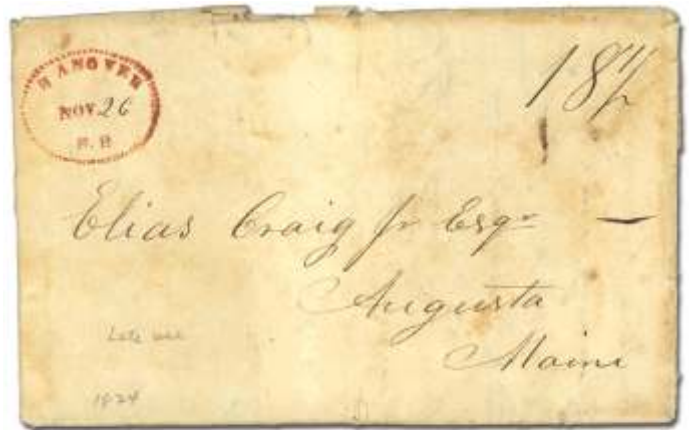 HANOVER
NOV. 26
N.H
18¾
Elias Craig Jr Esqr
Augusta
Maine
Late use
1824